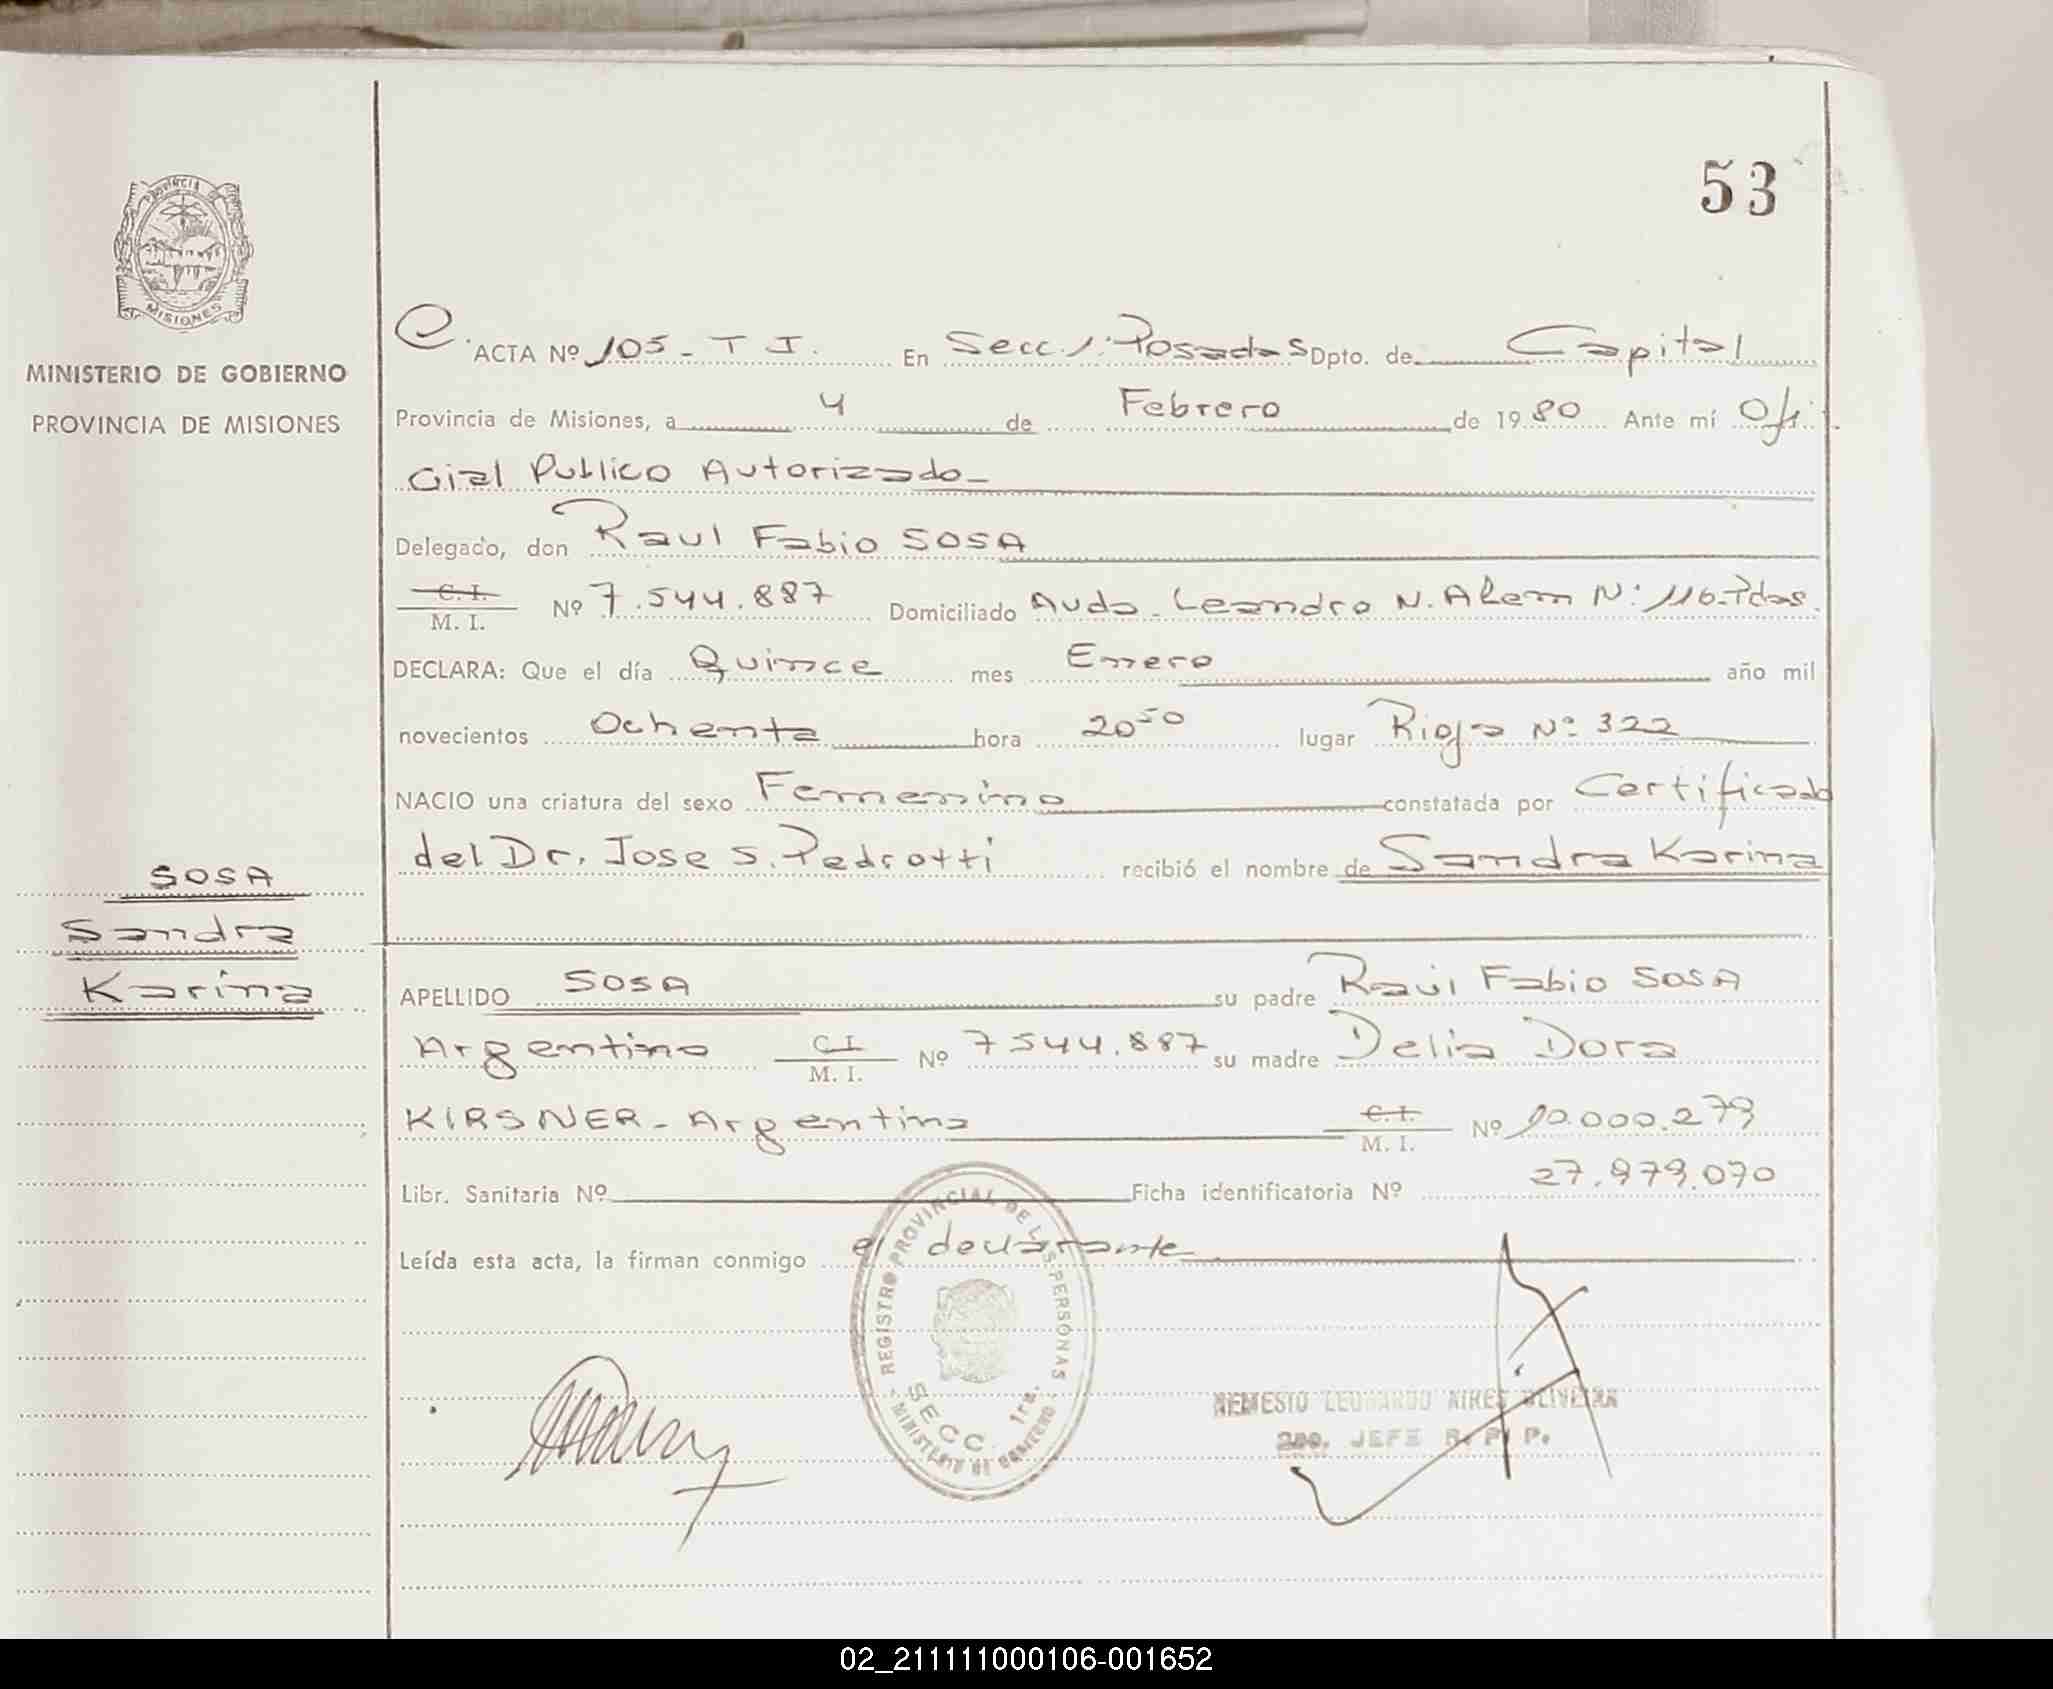 53
PROVINCIA DE
MISIONES
MINISTERIO DE GOBIERNO
PROVINCIA DE MISIONES
ACTA Nº 105 - T I. En Secc. 1: Posadas Dpto. de Capital
Provincia de Misiones, a 4 de Febrero de 1980 Ante mí Ofi
cial Publico Autorizado -
Delegado, don Raul Fabio SOSA
C. I.
M. I. Nº 7.544.887 Domiciliado Avda. Leandro N. Alem Nº 116. Pdas.
DECLARA: Que el día Quince mes Enero año mil
novecientos Ochenta hora 20 50 lugar Rioja Nº 322
NACIO una criatura del sexo Femenino constatada por Certificado
del Dr. Jose S. Pedrotti recibió el nombre de Sandra Karina
SOSA
Sandra
Karina
APELLIDO SOSA su padre Raul Fabio SOSA
Argentino C I
M. I. Nº 7544.887 su madre Delia Dora
KIRSNER - Argentina C. I.
M. I. Nº 10.000.279
Libr. Sanitaria Nº Ficha identificatoria Nº 27.979.070
Leída esta acta, la firman conmigo el declarante
REGISTRO PROVINCIAL DE LAS PERSONAS
SECC. 1ra.
MINISTERIO DE GOBIERNO
NEMESIO LEONARDO AIRES OLIVEIRA
2do. JEFE R. P. P.
02_211111000106-001652